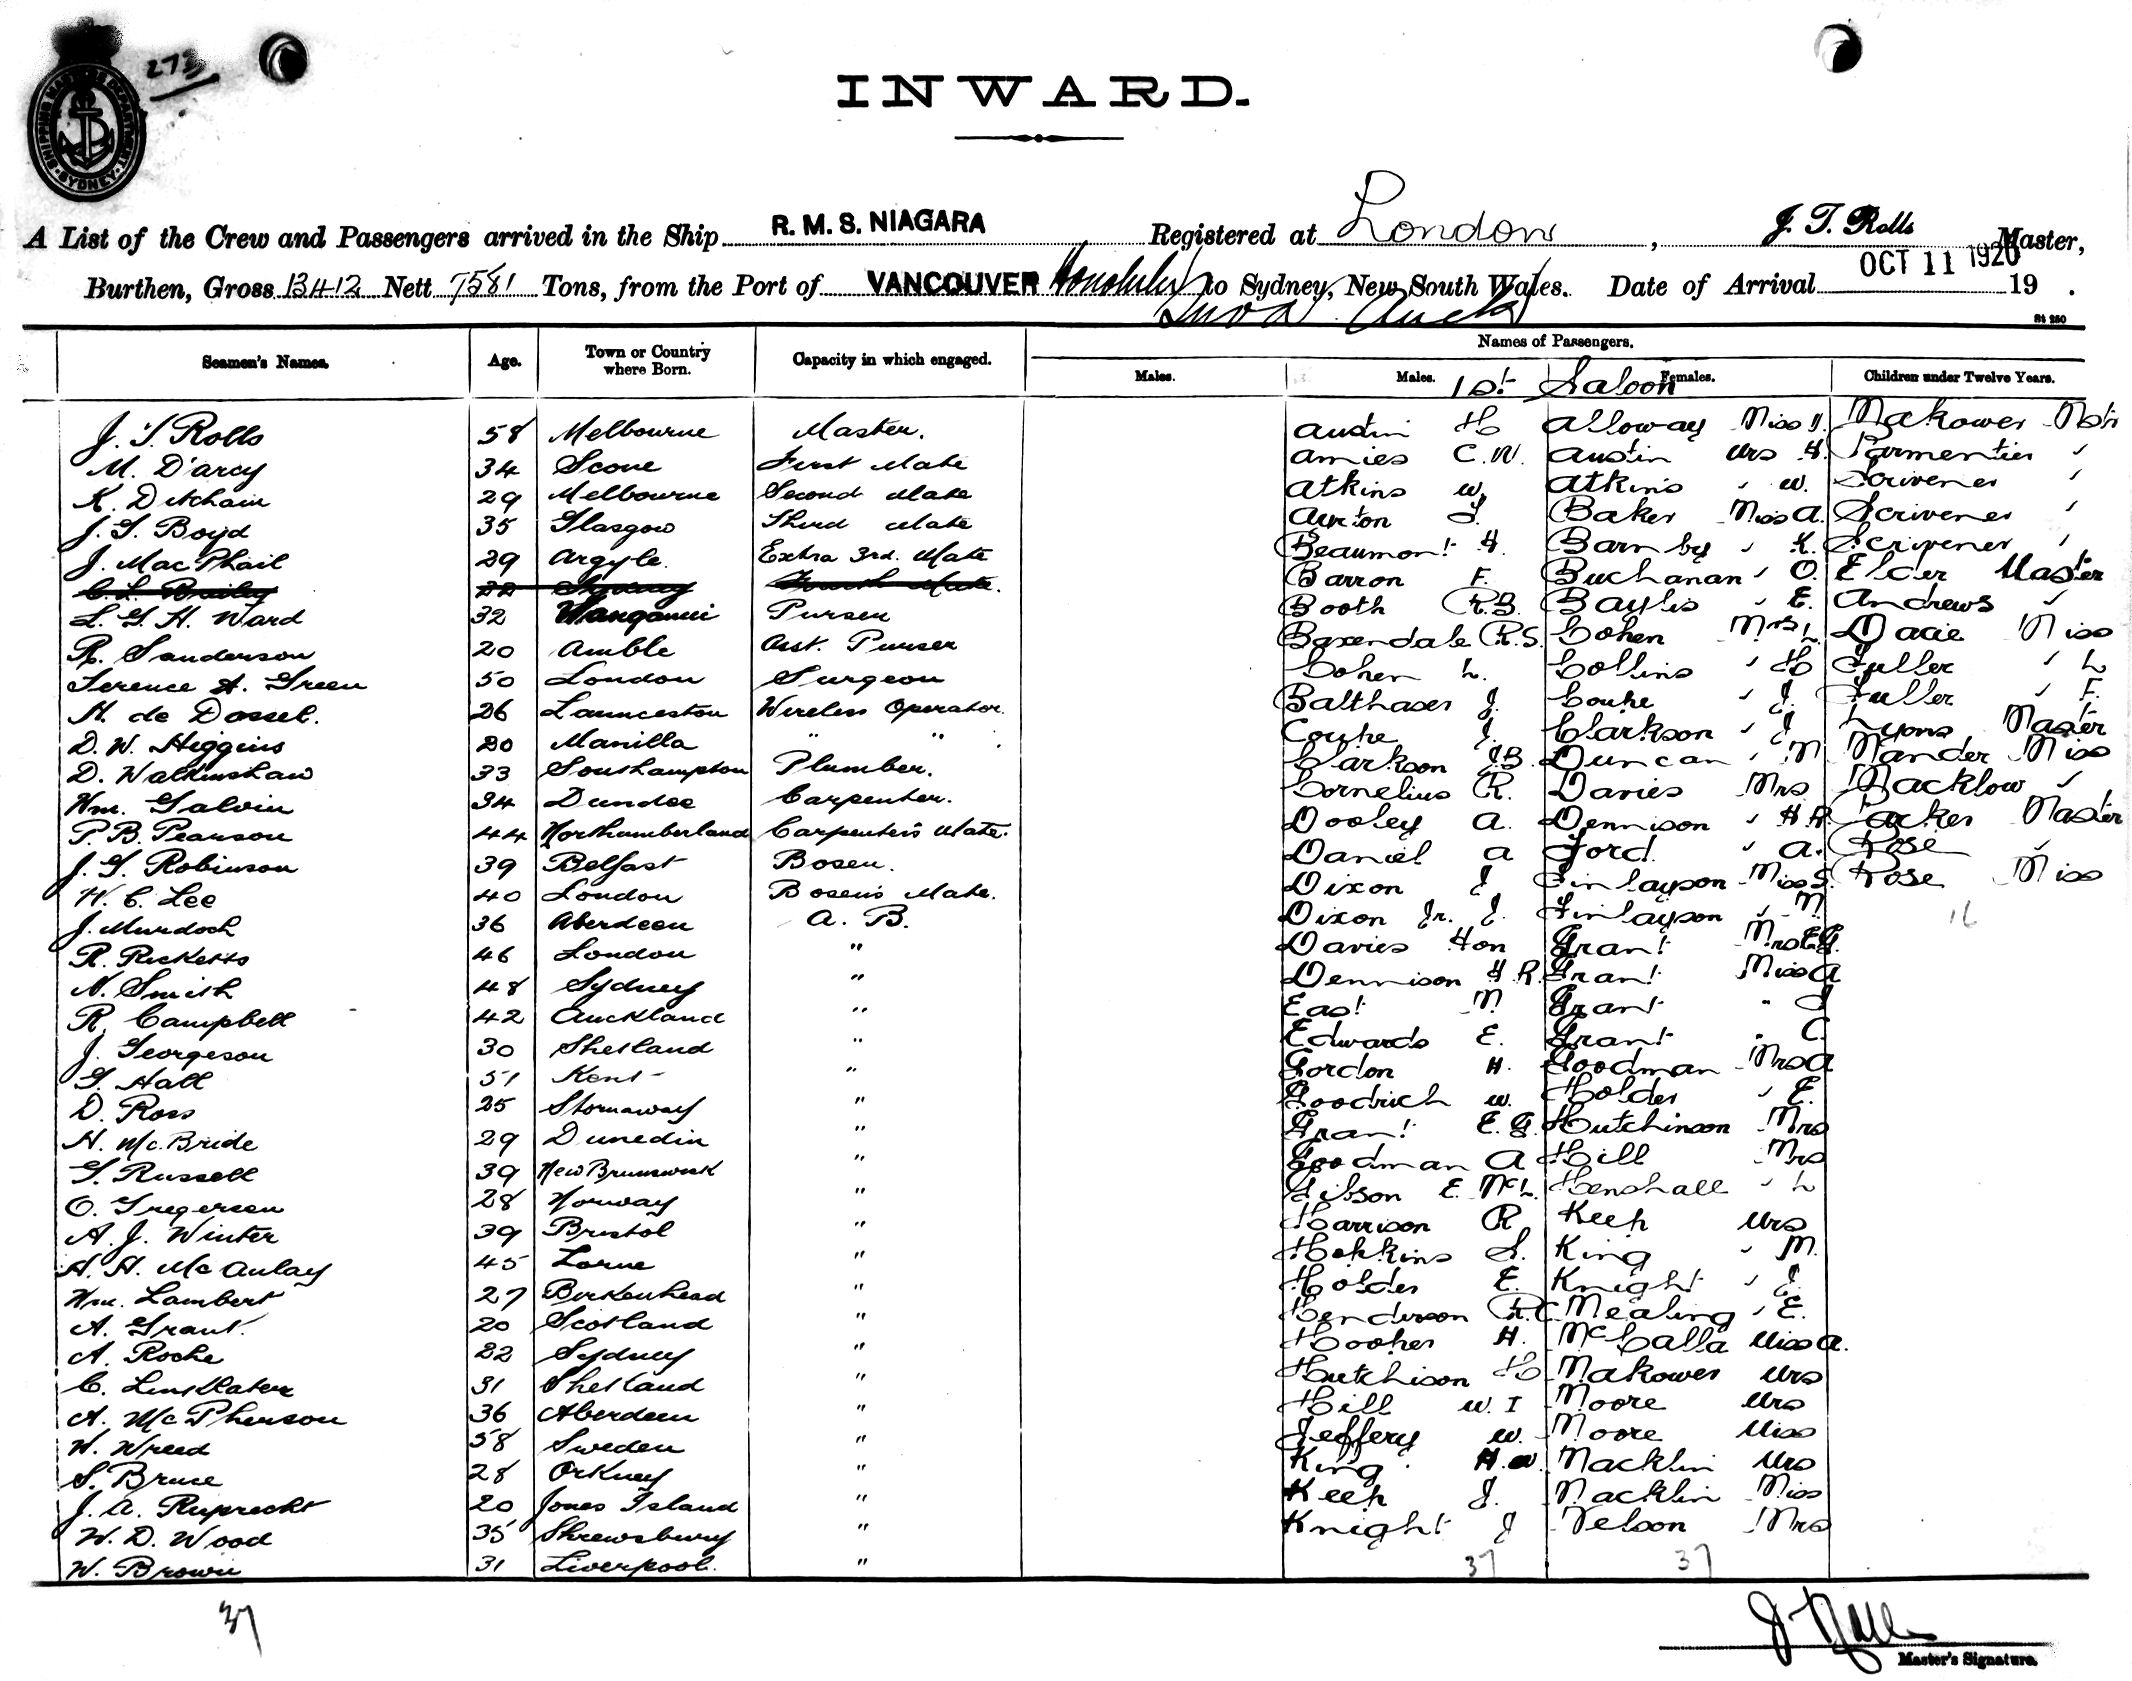 273
SHIPPING MASTER'S DEPARTMENT
SYDNEY
INWARD.
A List of the Crew and Passengers arrived in the Ship R.M.S. NIAGARA Registered at London, J. T. Rolls Master,
Burthen, Gross 13412 Nett 7581 Tons, from the Port of VANCOUVER Honolulu to Sydney, New South Wales. Date of Arrival OCT 11 1920 19 .
Suva Auck
Seamen's Names. Age. Town or Country where Born. Capacity in which engaged. Names of Passengers.
Males. Males. Females. Children under Twelve Years.
1st Saloon
J. T. Rolls 58 Melbourne Master. Austin H Alloway Miss Makower Mstr
M. D'arcy 34 Scone First Mate Amies C.W. Austin Mrs H. Parmentier "
K. Ditcham 29 Melbourne Second Mate Atkins W. Atkins " W. Scrivener "
J. G. Boyd 35 Glasgow Third Mate Baker Miss A. Scrivener "
J. MacPhail 29 Argyle. Extra 3rd. Mate Beaumont H. Barnby " K. Scrivener "
C. L. Bailey 22 Sydney Fourth Mate. Barron F. Buchanan " O. Elder Master
L. G. H. Ward 32 Wanganui Purser Booth R.B. Baylis " E. Andrews "
R. Sanderson 20 Amble Asst. Purser Baxendale R.S. Cohen Mrs L Dacie Miss
Terence A. Green 50 London Surgeon Cohen L. Collins " H Fuller " L
H. de Dassel. 26 Launceston Wireless Operator. Balthaser J. Couke " J. Fuller " F.
D. W. Higgins 20 Manilla " " . Couke J. Clarkson " J Lyons Master
D. Walkinshaw 33 Southampton Plumber. Clarkson J.B. Duncan " M Mander Miss
Wm. Galvin 34 Dundee Carpenter. Cornelius R. Davies Mrs Macklow "
P. B. Pearson 44 Northumberland Carpenter's Mate. Dooley A. Dennison " H R. Packer Master
J. G. Robinson 39 Belfast Bosen. Daniel A Ford. " A. Rose "
H. C. Lee 40 London Bosen's Mate. Dixon J Finlayson Miss S. Rose Miss
J. Murdoch 36 Aberdeen A. B. Dixon Jr. J. Finlayson " M 16
R. Ricketts 46 London " Davies Hon Grant Mrs E.G.
N. Smith 48 Sydney " Dennison H.R. Grant Miss A
R. Campbell 42 Auckland " East M Grant "
J. Georgeson 30 Shetland " Edwards E. Grant " C.
G. Hall 51 Kent " Gordon H. Goodman Mrs A
D. Ross 25 Stornaway " Goodrich W. Holder " E.
H. McBride 29 Dunedin " Grant E.G. Hutchinson Mrs
G. Russell 39 New Brunswick " Goodman A Hill Mrs
O. Gregersen 28 Norway " Gibson E. McL. Henshall " L
A. J. Winter 39 Bristol " Harrison R Keep Mrs
A. H. McAulay 45 Lorne " Hopkins S. King " M.
Wm. Lambert 27 Birkenhead " Holder E. Knight " J.
A. Grant. 20 Scotland " Henderson R.C. Mealing " E.
A. Roche 22 Sydney " Hooper H. McCalla Miss A.
C. Linklater 31 Shetland " Hutchison H Makower Mrs
A. McPherson 36 Aberdeen " Hill W. I Moore Mrs
W. Wreed 58 Sweden " Jeffery W. Moore Miss
S. Bruce 28 Orkney " King H.W. Macklin Mrs
J. A. Ruprecht 20 Jones Island " Keep J. Macklin Miss
W. D. Wood 35 Shrewsbury " Knight J Nelson Mrs
W. Brown 31 Liverpool. " 37 37
37
Master's Signature.